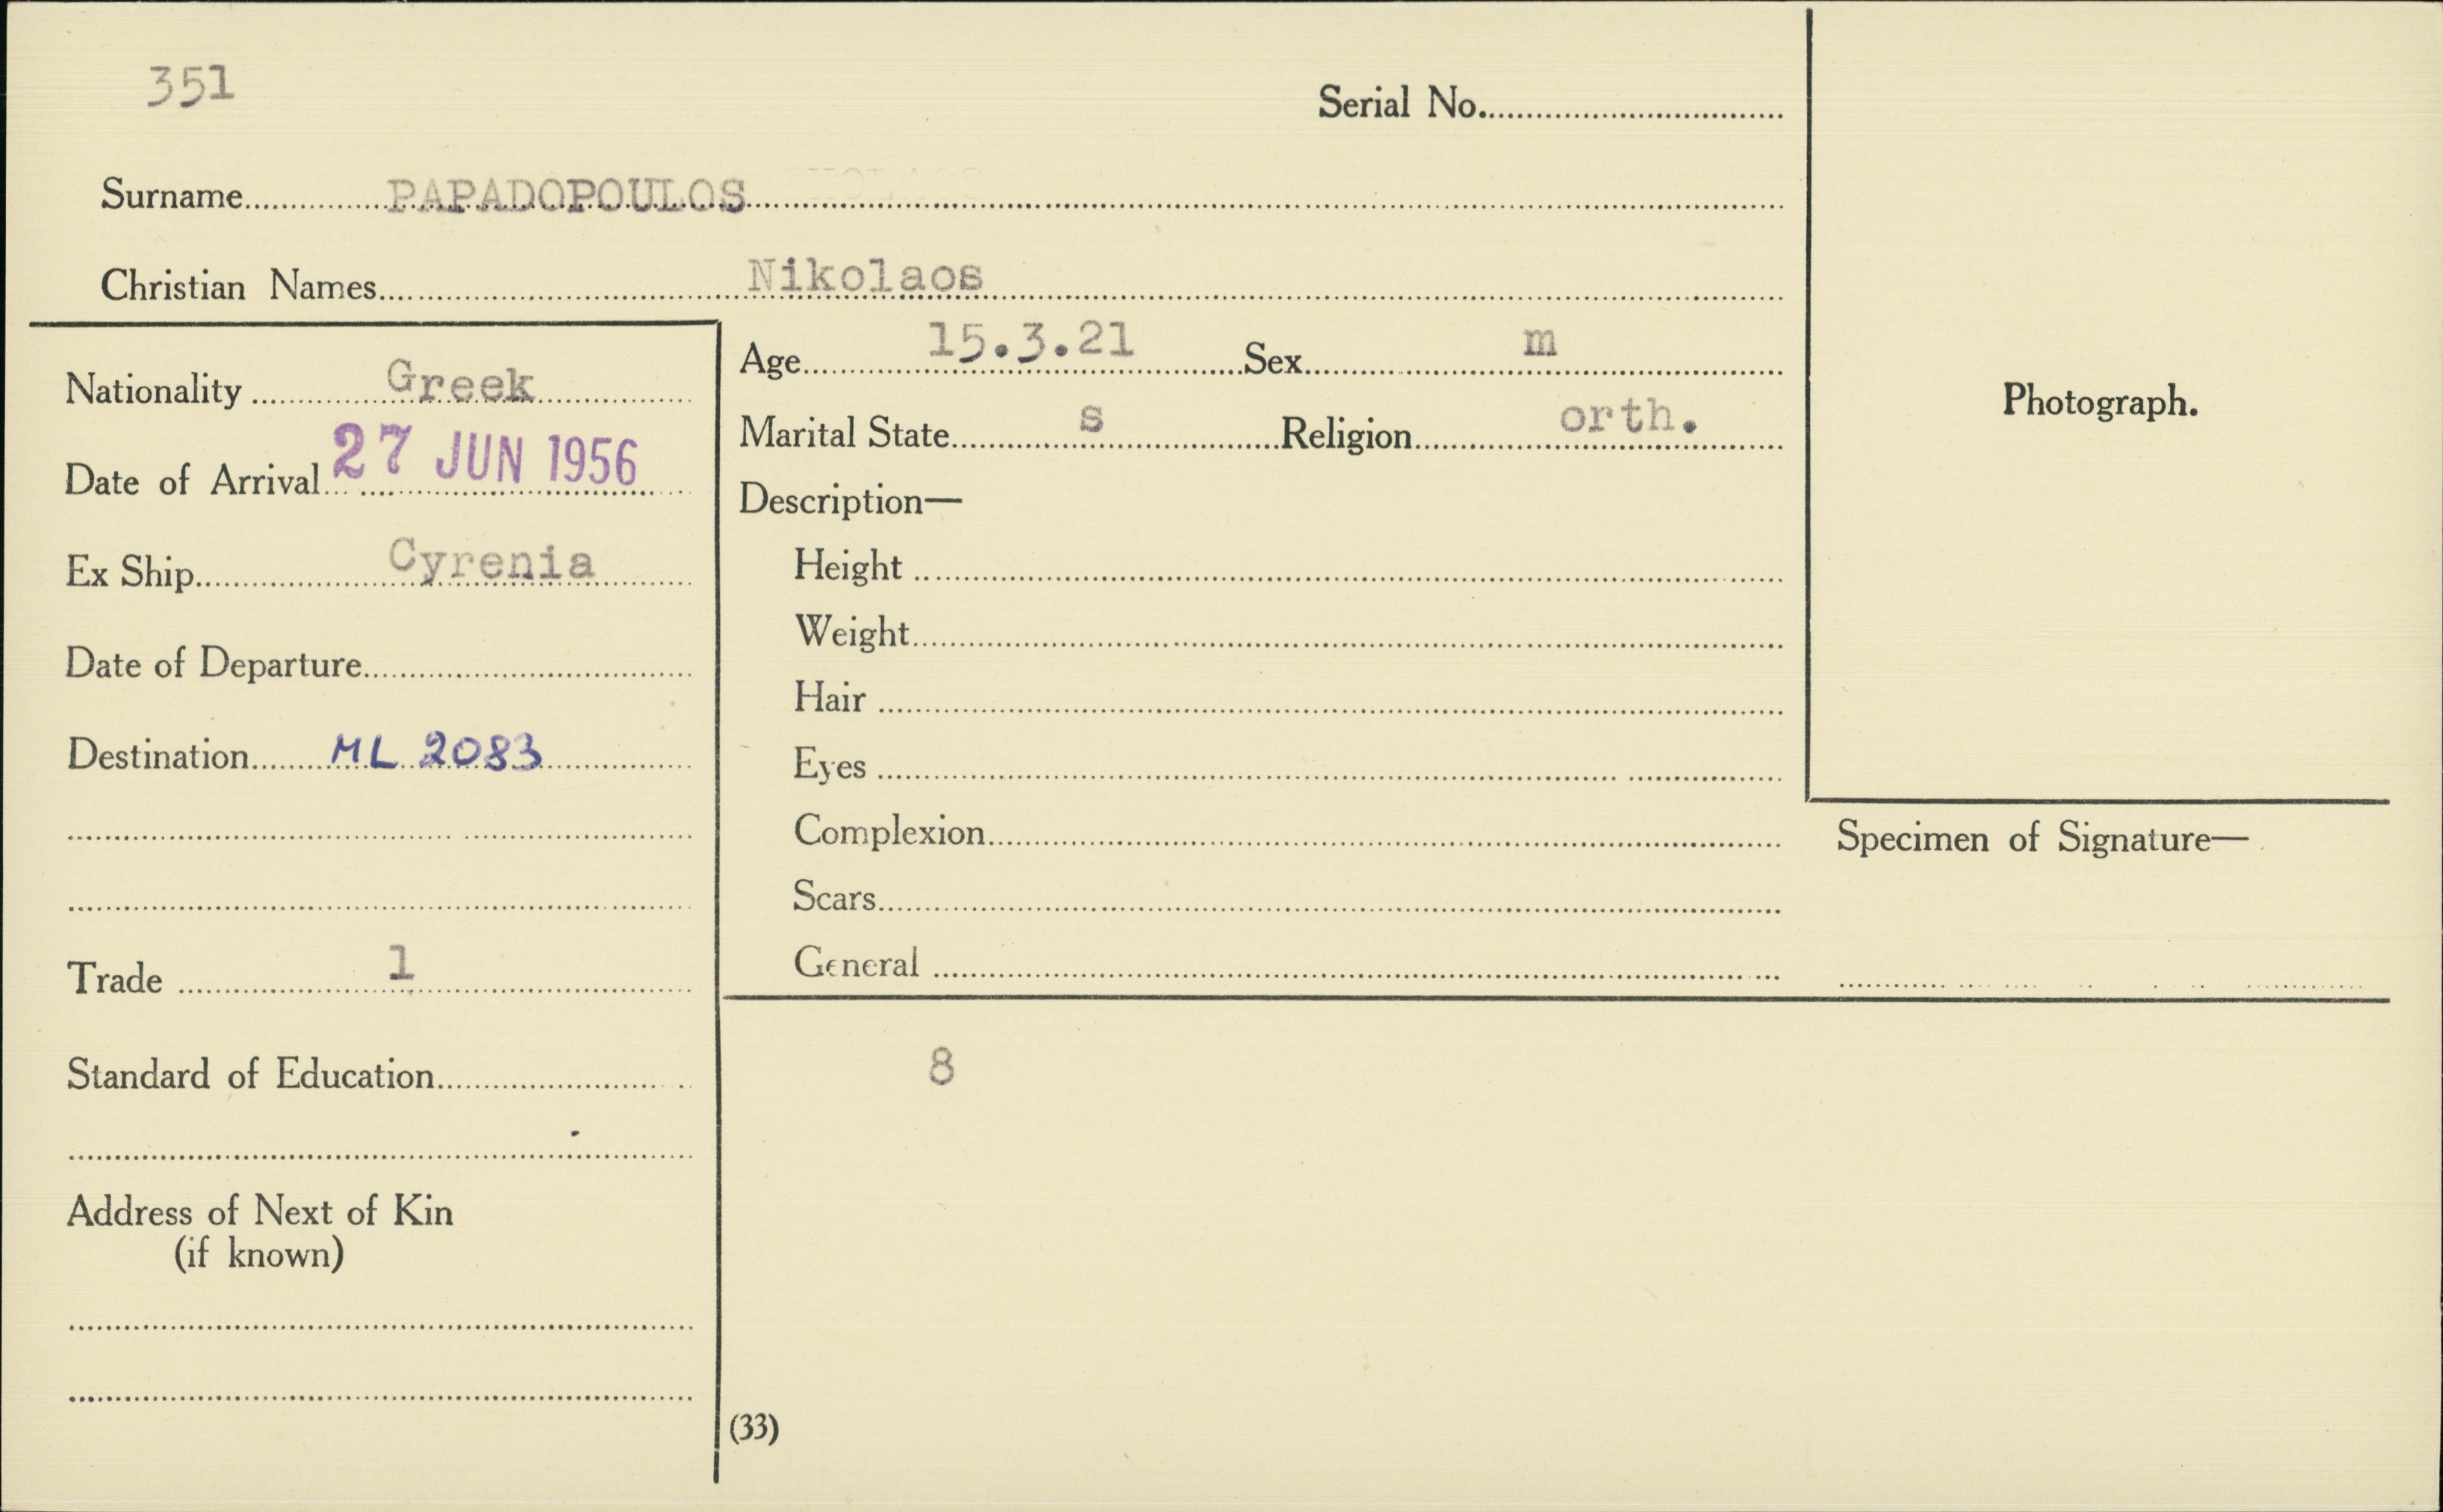 351
Serial No.
Surname PAPADOPOULOS
Christian Names Nikolaos
Nationality Greek
Date of Arrival 27 JUN 1956
Ex Ship Cyrenia
Date of Departure
Destination ML 2083
Trade 1
Standard of Education
Address of Next of Kin
(if known)
Age 15.3.21 Sex m
Marital State s Religion orth.
Description—
Height
Weight
Hair
Eyes
Complexion
Scars
General
8
(33)
Photograph.
Specimen of Signature—